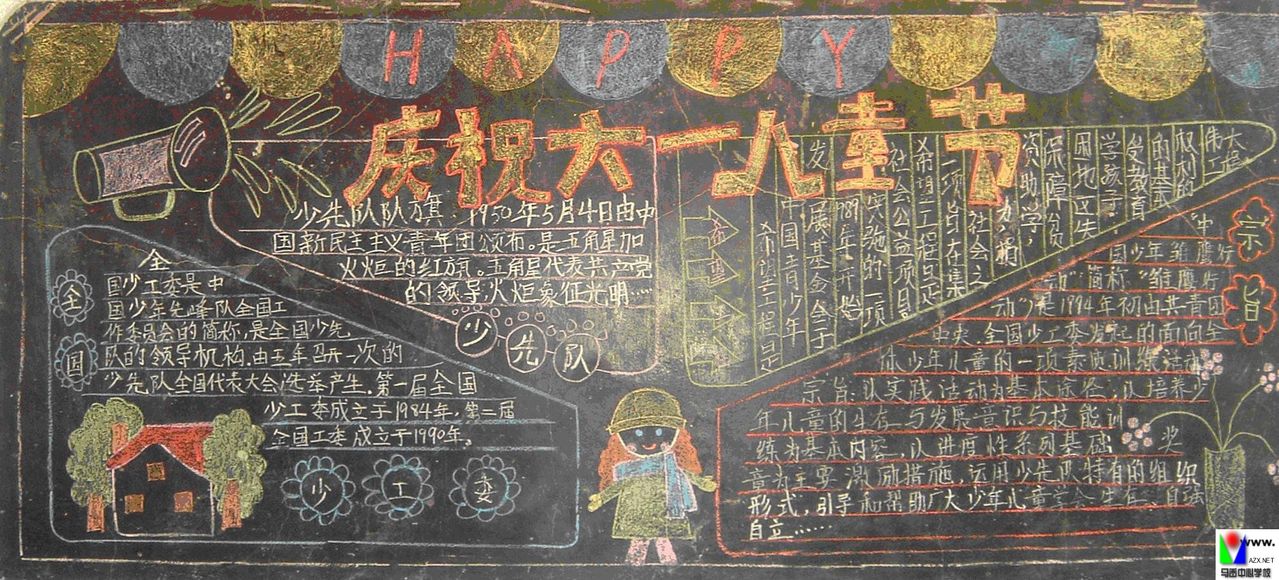 HAPPY
庆祝六一儿童节
少先队队旗：1950年5月4日由中
国新民主主义青年团颁布。是五角星加
火炬的红旗。五角星代表共产党
的领导，火炬象征光明……
少先队
全
国少工委是中
国少年先峰队全国工
作委员会的简称，是全国少先
队的领导机构，由五年召开一次的
少先队全国代表大会选举产生。第一届全国
少工委成立于1984年，第二届
全国工委成立于1990年。
全国
少工委
希望工程是
中国青少年
发展基金会于
1989年开始
实施的一项
社会公益项目
希望工程是
一项旨在集
社会之
力，
资助学，
保障贫
困地区失
学孩子
受教育
的基本
权利的
伟大
工程
宗旨
“中
国少年雏鹰行
动”简称“雏鹰行
动”）是1994年初由共青团
中央、全国少工委发起的面向全
体少年儿童的一项素质训练活动
宗旨：以实践活动为基本途径，以培养少
年儿童的生存与发展意识与技能训
练为基本内容，以进度性系列基础 奖
章为主要激励措施，运用少先队特有的组织
形式，引导和帮助广大少年儿童学会生存、自强
自立……
www.
AZX.NET
中心学校